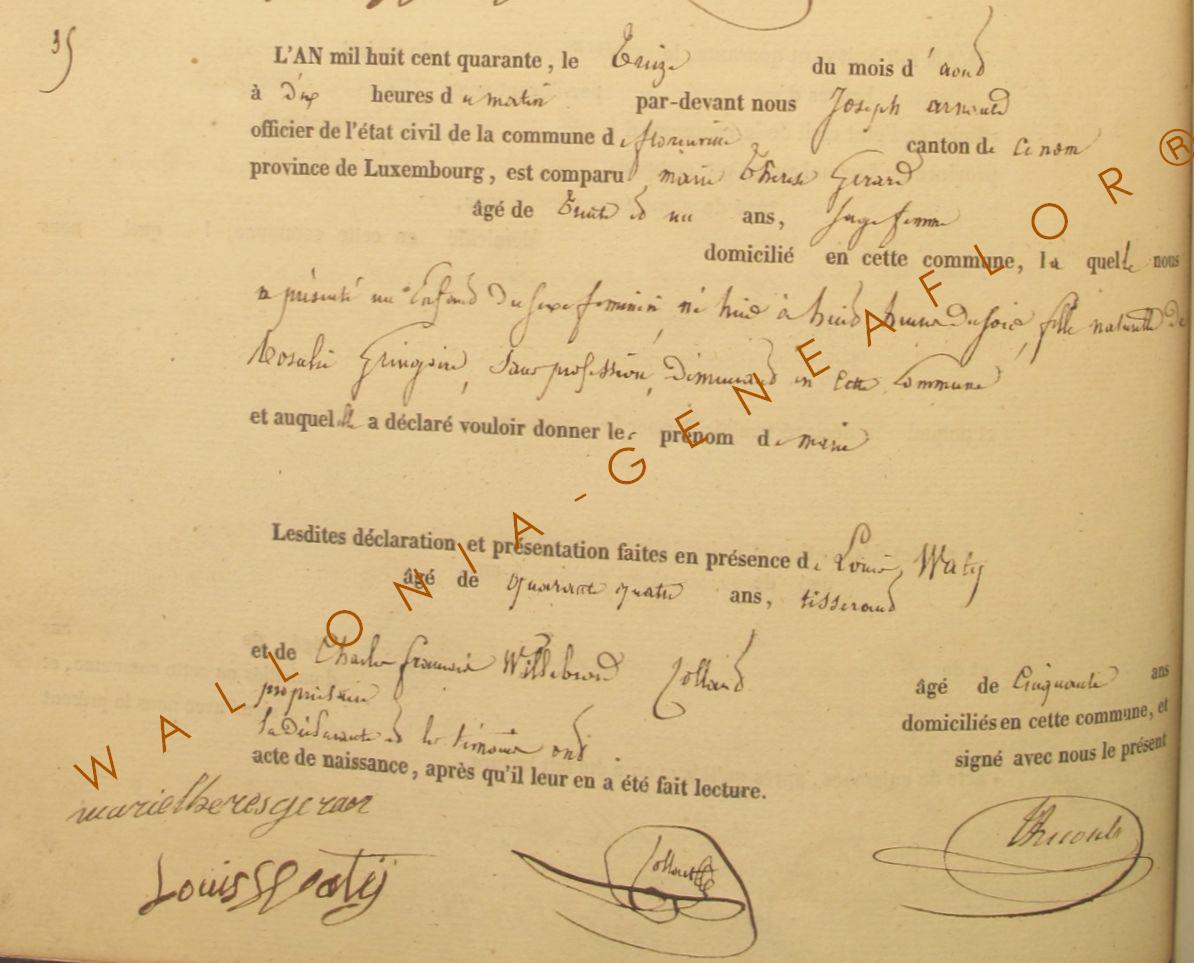 35
L'AN mil huit cent quarante, le Treize du mois d'aout
à dix heures du matin par-devant nous Joseph arnould
officier de l'état civil de la commune de florenville canton de ce nom
province de Luxembourg, est comparu marie Therese Gerard
âgé de Trente et un ans, sage femme
domicilié en cette commune, la quelle nous
a présenté un Enfant du sexe feminin, né hier à huit heures du soir, fille naturelle de
Rosalie Gringoire, sans profession, demeurant en cette commune
et auquelle a déclaré vouloir donner le prénom de marie
Lesdites déclaration et présentation faites en présence de Louis Waty
âgé de quarante quatre ans, tisserand
et de Charles francois Willebrord Collard âgé de Cinquante ans
propriétaire domiciliés en cette commune, et
la déclarante et les témoins ont signé avec nous le présent
acte de naissance, après qu'il leur en a été fait lecture.
marie theres gerar
Louis Watÿ
WALLONIA-GENEAFLOR®